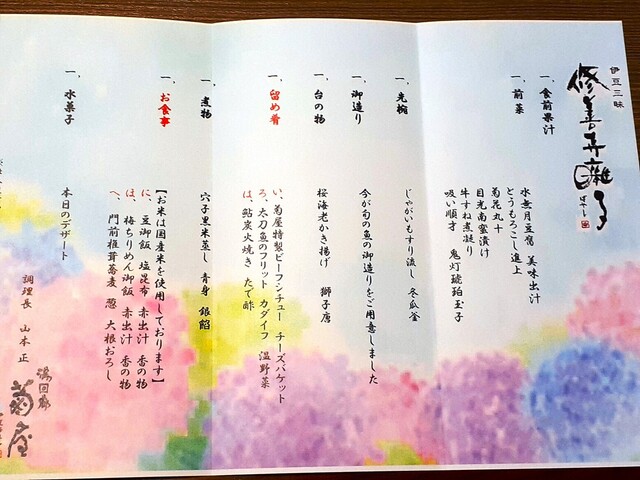 伊豆三昧
修善寺囃る
ばやし
一、食前果汁
一、前菜
水無月豆腐 美味出汁
とうもろこし進上
菊花丸十
目光南蛮漬け
牛すね煮凝り
吸い順才 鬼灯琥珀玉子
一、先椀
じゃがいもすり流し 冬瓜釜
一、御造り
今が旬の魚の御造りをご用意しました
一、台の物
桜海老かき揚げ 獅子唐
一、留め肴
い、菊屋特製ビーフシチュー チーズバゲット
ろ、太刀魚のフリット カダイフ 温野菜
は、鮎炭火焼き たで酢
一、煮物
穴子里米蒸し 青身 銀餡
一、お食事
【お米は国産米を使用しております】
に、豆御飯 塩昆布 赤出汁 香の物
ほ、梅ちりめん御飯 赤出汁 香の物
へ、門前椎茸蕎麦 葱 大根おろし
一、水菓子
本日のデザート
調理長 山本 正
湯回廊
菊屋